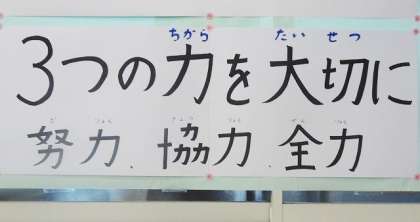 ちから たいせつ
3つの力を大切に
ど りょく きょう りょく ぜん りょく
努力、協力、全力